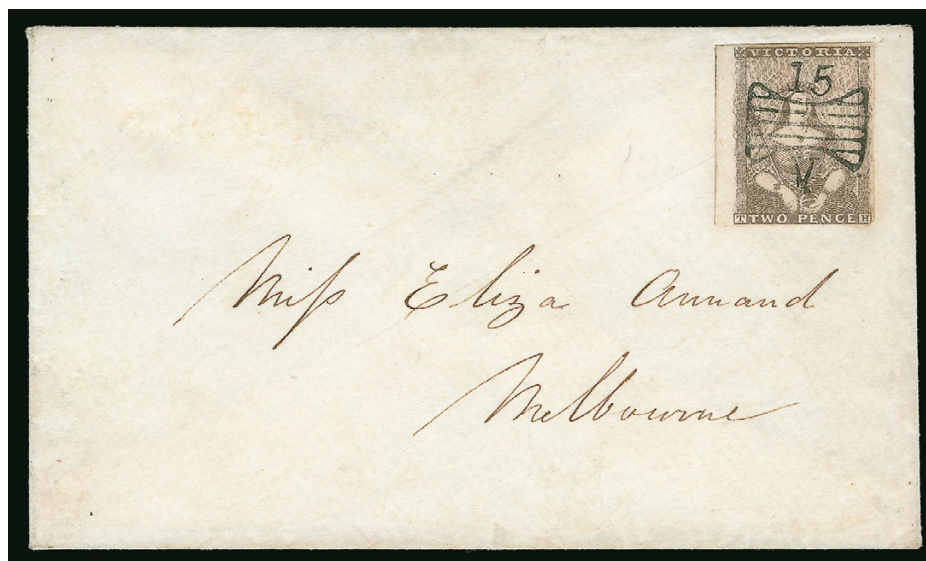 VICTORIA
15
V
T TWO PENCE H
Miſs Eliza Annand
Melbourne